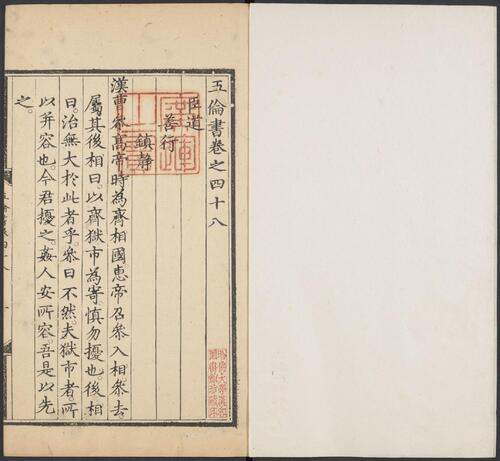 五倫書卷之四十八
臣道
善行
鎮静
漢曹參髙帝時為齊相國。惠帝召參入相。參去。
屬其後相曰。以齊獄市為寄。慎勿擾也。後相
曰。治無大於此者乎。參曰不然。夫獄市者。所
以并容也。今君擾之。姦人安所容。吾是以先
之。
廣運之寶